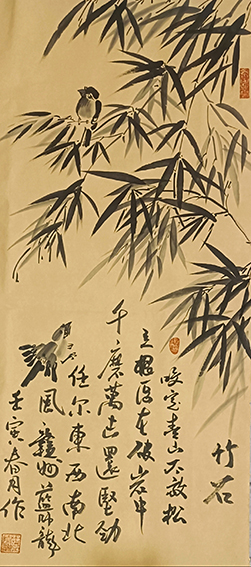 竹石
咬定青山不放松
立根原在破岩中
千磨萬击還堅勁
任尔東西南北
風 贛州
壬寅春月作